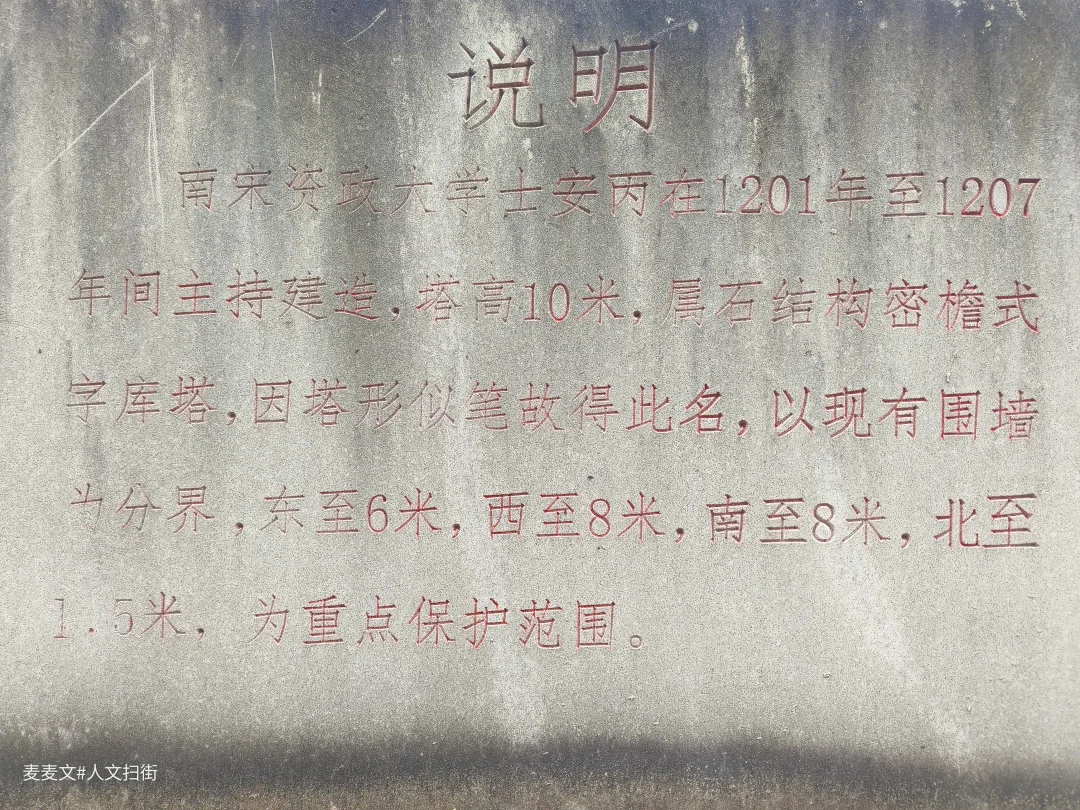 说明
南宋资政大学士安丙在1201年至1207
年间主持建造,塔高10米,属石结构密檐式
字库塔,因塔形似笔故得此名,以现有围墙
为分界,东至6米,西至8米,南至8米,北至
1.5米,为重点保护范围。
麦麦文#人文扫街